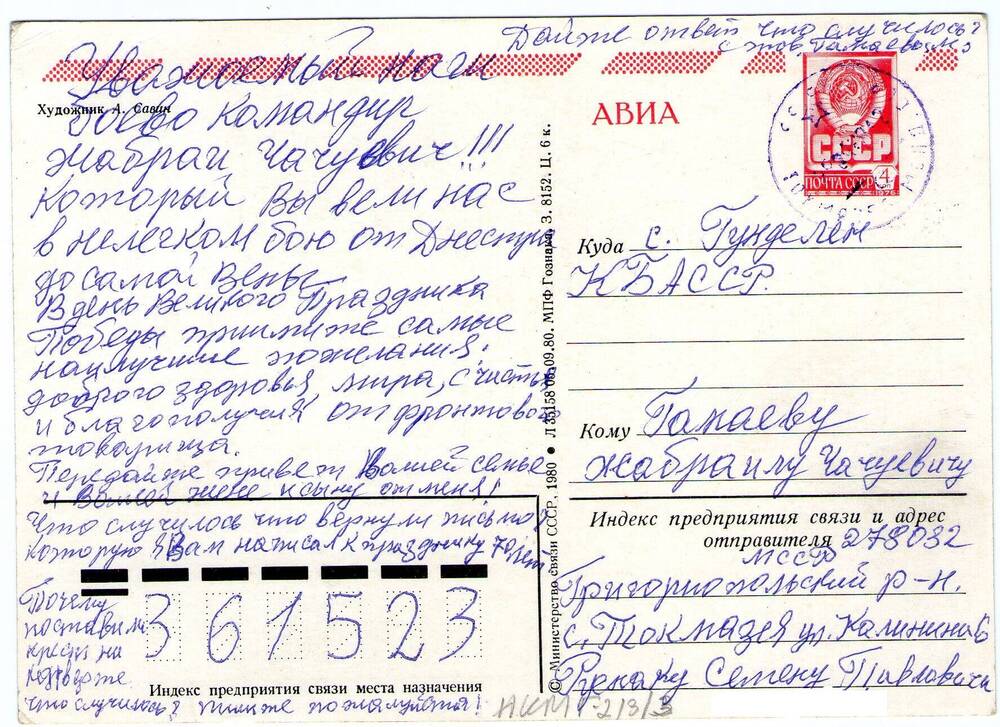 Дайте ответ что случилось?
с тов Гапаевым?
Уважаемый наш
Художник А. Савин
боево командир
Жабраил Чачуевич!!!
Который Вы вели нас
в нелегком бою от Днестра
до самой Вены
В день Великого Праздника
Победы приимите самые
наилучшие пожелания.
доброго здоровья мира, счастья
и благополучия от фронтового
товарища.
Передайте привет Вашей семье
и Вашей жене и сыну от меня!
Что случилось что вернули письмо?
которую я Вам написал к празднику 70 лет
Почему
поставили
крест на
конверте
что случилось? пишите пожалуйста!
361523
Индекс предприятия связи места назначения
© Министерство связи СССР, 1980 • Л 35158 08.09.80. МПФ Гознака. З. 8152. Ц. 6 к.
АВИА
СССР
ПОЧТА СССР 4
1976
Куда с. Гунделен
КБАССР.
Кому Гапаеву
Жабраилу Чачуевичу
Индекс предприятия связи и адрес
отправителя 278032
МССР
Григориопольский р-н.
с. Токмазея ул. Калинина 6
Семену Павловичу
НКМ-2/3/3